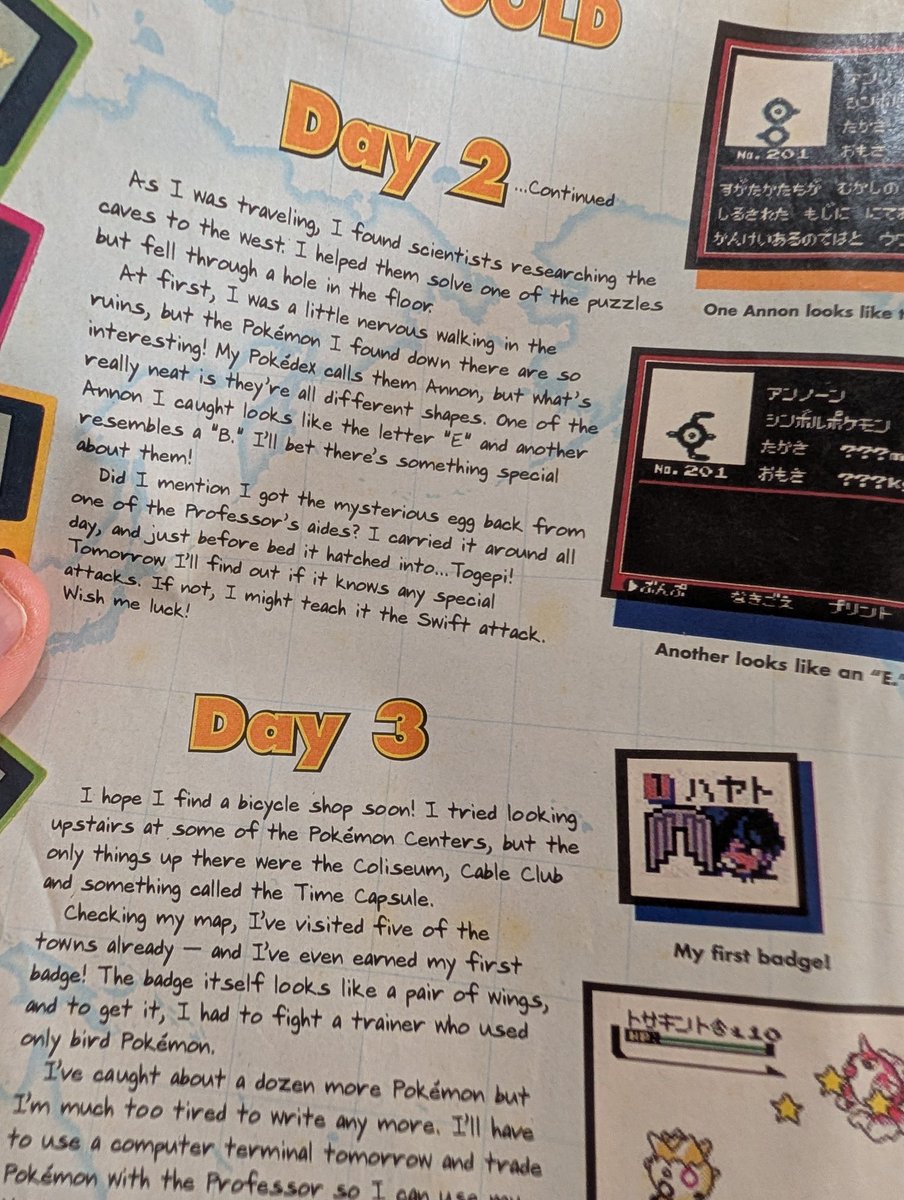 GOLD
Day 2
...Continued
As I was traveling, I found scientists researching the
caves to the west. I helped them solve one of the puzzles
but fell through a hole in the floor.
At first, I was a little nervous walking in the
ruins, but the Pokémon I found down there are so
interesting! My Pokédex calls them Annon, but what's
really neat is they're all different shapes. One of the
Annon I caught looks like the letter "E" and another
resembles a "B." I'll bet there's something special
about them!
Did I mention I got the mysterious egg back from
one of the Professor's aides? I carried it around all
day, and just before bed it hatched into...Togepi!
Tomorrow I'll find out if it knows any special
attacks. If not, I might teach it the Swift attack.
Wish me luck!
Day 3
I hope I find a bicycle shop soon! I tried looking
upstairs at some of the Pokémon Centers, but the
only things up there were the Coliseum, Cable Club
and something called the Time Capsule.
Checking my map, I've visited five of the
towns already — and I've even earned my first
badge! The badge itself looks like a pair of wings,
and to get it, I had to fight a trainer who used
only bird Pokémon.
I've caught about a dozen more Pokémon but
I'm much too tired to write any more. I'll have
to use a computer terminal tomorrow and trade
Pokémon with the Professor so I can use my
たかさ
No. 201 おもさ
すがたかたちが むかしの
しるされた もじに にてお
かんけいあるのではと
One Annon looks like
アンノーン
シンボルポケモン
たかさ ???m
No. 201 おもさ ???kg
▶ぶんぷ なきごえ プリント
Another looks like an "E."
1 ハヤト
My first badge!
トサキント♂:L10
HP: